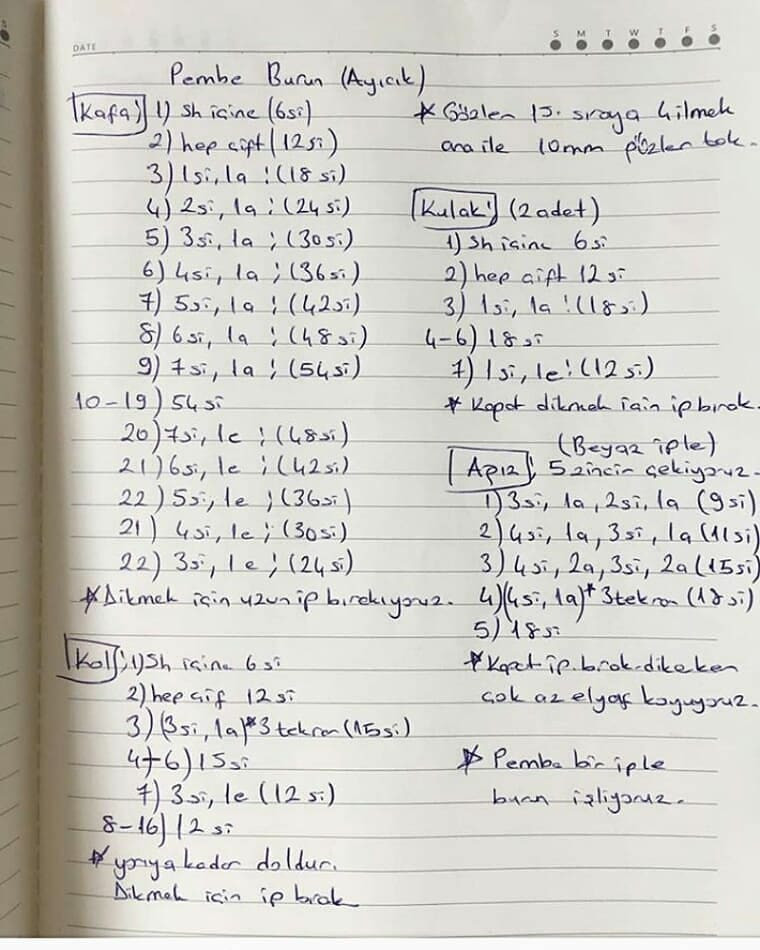 DATE
S M T W T F S
Pembe Burun (Ayıcık)
Kafa; 1) Sh içine (6si)
2) hep çift (12si)
3) 1si, 1a ; (18 si)
4) 2si, 1a ; (24si)
5) 3si, 1a ; (30si)
6) 4si, 1a ; (36si)
7) 5si, 1a ; (42si)
8) 6si, 1a ; (48si)
9) 7si, 1a ; (54si)
10-19) 54si
20) 7si, 1e ; (48si)
21) 6si, 1e ; (42si)
22) 5si, 1e ; (36si)
21) 4si, 1e ; (30si)
22) 3si, 1e ; (24si)
* Dikmek için uzun ip bırakıyoruz.
Kol; 1) Sh içine 6si
2) hep çif 12si
3) (3si, 1a)*3 tekrar (15si)
4-6) 15si
7) 3si, 1e (12si)
8-16) 12si
* yarıya kadar doldur.
Dikmek için ip bırak
* Gözler 15. sıraya 4 ilmek
ara ile 10mm gözler tak.
Kulak; (2 adet)
1) Sh içine 6si
2) hep çift 12si
3) 1si, 1a ; (18si)
4-6) 18si
7) 1si, 1e ; (12si)
* Kapat dikmek için ip bırak.
(Beyaz iple)
Ağız; 5 zincir çekiyoruz.
1) 3si, 1a, 2si, 1a (9si)
2) 4si, 1a, 3si, 1a (11si)
3) 4si, 2a, 3si, 2a (15si)
4) (4si, 1a)* 3 tekrar (18si)
5) 18si
* Kapat ip bırak. dikerken
çok az elyaf koyuyoruz.
* Pembe bir iple
burun işliyoruz.